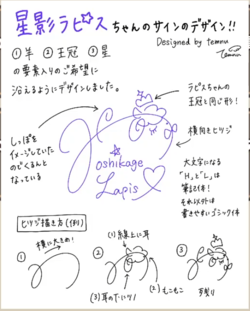 星影ラピス ちゃんのサインのデザイン!!
Designed by temnu
①羊 ②王冠 ③星
の要素入りのご希望に
沿えるようにデザインしました。
ラピスちゃんの
王冠と同じ形!
しっぽを
イメージしていた
のでくるんと
なっている
Hoshikage
Lapis
横向きヒツジ
大文字になる
「H」と「L」は
筆記体!
それ以外は
書きやすいゴシック体
ヒツジ描き方(例)
① 横に大きめ!
② (1)線上に耳
(2)もこもこ
(3)耳の下にツノ
③